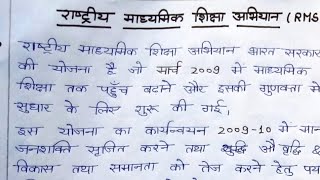 राष्ट्रीय माध्यमिक शिक्षा अभियान (RMS
राष्ट्रीय माध्यमिक शिक्षा अभियान भारत सरकार
की योजना है जो मार्च 2009 में माध्यमिक
शिक्षा तक पहुँच बढाने और इसकी गुणवत्ता में
सुधार के लिए शुरू की गई।
इस योजना का कार्यन्वयन 2009-10 से मान
जनशक्ति सृजित करने तथा वृद्धि
विकास तथा समानता को तेज करने हेतु पय